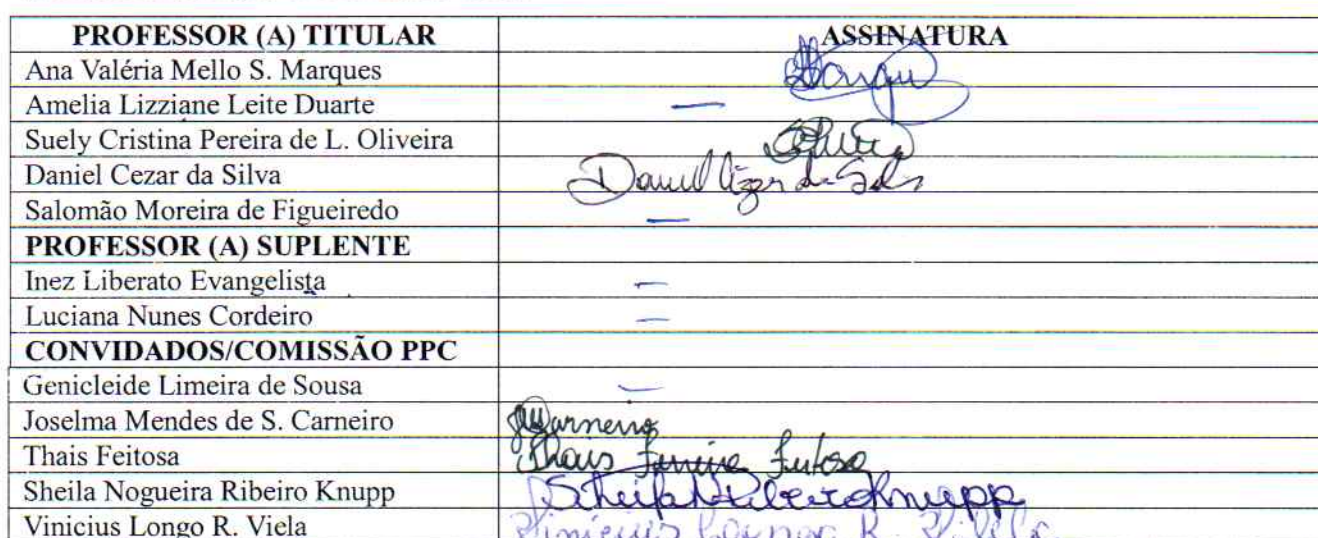 PROFESSOR (A) TITULAR ASSINATURA
Ana Valéria Mello S. Marques
Amelia Lizziane Leite Duarte —
Suely Cristina Pereira de L. Oliveira
Daniel Cezar da Silva Daniel Cézar da Silva
Salomão Moreira de Figueiredo —
PROFESSOR (A) SUPLENTE
Inez Liberato Evangelista —
Luciana Nunes Cordeiro —
CONVIDADOS/COMISSÃO PPC
Genicleide Limeira de Sousa —
Joselma Mendes de S. Carneiro JMCarneiro
Thais Feitosa Thais Ferreira Feitosa
Sheila Nogueira Ribeiro Knupp Sheila N Ribeiro Knupp
Vinicius Longo R. Viela Vinicius Longo R. Vilela